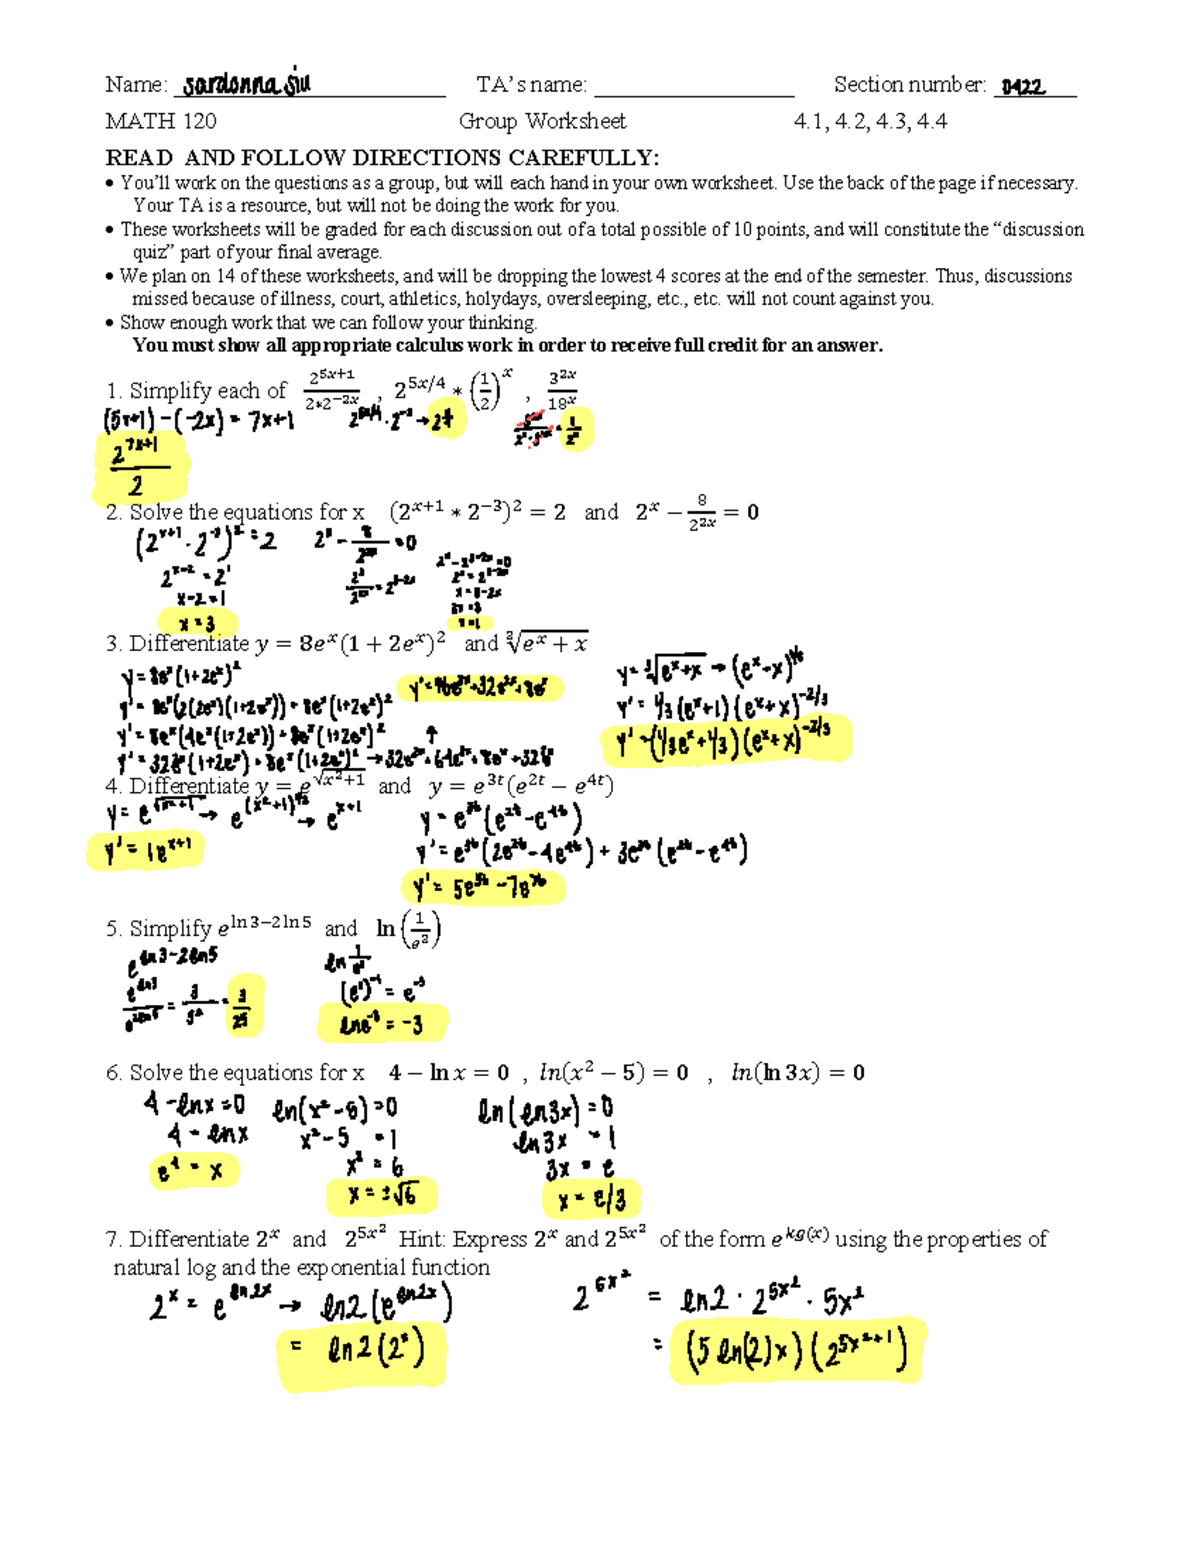 Name: sardonna siu TA's name: Section number: 0422
MATH 120 Group Worksheet 4.1, 4.2, 4.3, 4.4
READ AND FOLLOW DIRECTIONS CAREFULLY:
• You'll work on the questions as a group, but will each hand in your own worksheet. Use the back of the page if necessary.
Your TA is a resource, but will not be doing the work for you.
• These worksheets will be graded for each discussion out of a total possible of 10 points, and will constitute the "discussion
quiz" part of your final average.
• We plan on 14 of these worksheets, and will be dropping the lowest 4 scores at the end of the semester. Thus, discussions
missed because of illness, court, athletics, holydays, oversleeping, etc., etc. will not count against you.
• Show enough work that we can follow your thinking.
You must show all appropriate calculus work in order to receive full credit for an answer.
1. Simplify each of 2^(5x+1)/(2*2^(−2x)) , 2^(5x/4) * (1/2)^x , 3^(2x)/18^x
(5x+1) - (-2x) = 7x+1
2^(7x+1)/2
2. Solve the equations for x (2^(x+1) * 2^(−3))^2 = 2 and 2^x − 8/2^(2x) = 0
(2^(x+1) · 2^(-3))^2 = 2
2^(x-2) = 2^1
x-2=1
x=3
3. Differentiate y = 8e^x(1 + 2e^x)^2 and ∛(e^x + x)
y = 8e^x(1+2e^x)^2 y = ∛(e^x+x) → (e^x-x)^(1/3)
y' = 8e^x(2(2e^x)(1+2e^x)) + 8e^x(1+2e^x)^2 y' = 1/3(e^x+1)(e^x+x)^(-2/3)
y' = 8e^x(4e^x(1+2e^x)) + 8e^x(1+2e^x)^2 ↑ y' = (1/3e^x+1/3)(e^x+x)^(-2/3)
4. Differentiate y = e^√(x^2+1) and y = e^(3t)(e^(2t) − e^(4t))
y = e^√(x^2+1) → e^((x^2+1)^(1/2)) → e^(x+1) y = e^(3t)(e^(2t)-e^(4t))
y' = 1e^(x+1) y' = e^(3t)(2e^(2t)-4e^(4t)) + 3e^(3t)(e^(2t)-e^(4t))
y' = 5e^(5t) - 7e^(7t)
5. Simplify e^(ln 3−2 ln 5) and ln(1/e^2)
e^(ln3-2ln5)
e^(ln3)/e^(2ln5) = 3/5^2 = 3/25 (e^3)^(-1) = e^(-3)
lne^(-3) = -3
6. Solve the equations for x 4 − ln x = 0 , ln(x^2 − 5) = 0 , ln(ln 3x) = 0
4 - lnx = 0 ln(x^2-5) = 0 ln(ln3x) = 0
4 = lnx x^2-5 = 1 ln3x = 1
e^4 = x x^2 = 6 3x = e
x = ±√6 x = e/3
7. Differentiate 2^x and 2^(5x^2) Hint: Express 2^x and 2^(5x^2) of the form e^(kg(x)) using the properties of
natural log and the exponential function
2^x = e^(ln2x) → ln2(e^(ln2x)) 2^(5x^2) = ln2 · 2^(5x^2) · 5x^2
= ln2(2^x) = (5 ln(2)x)(2^(5x^2+1))